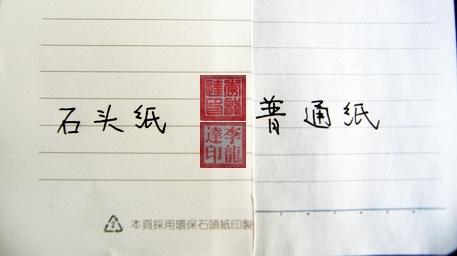 石头紙
普通紙
李龍
達印
2 本頁採用環保石頭紙印製